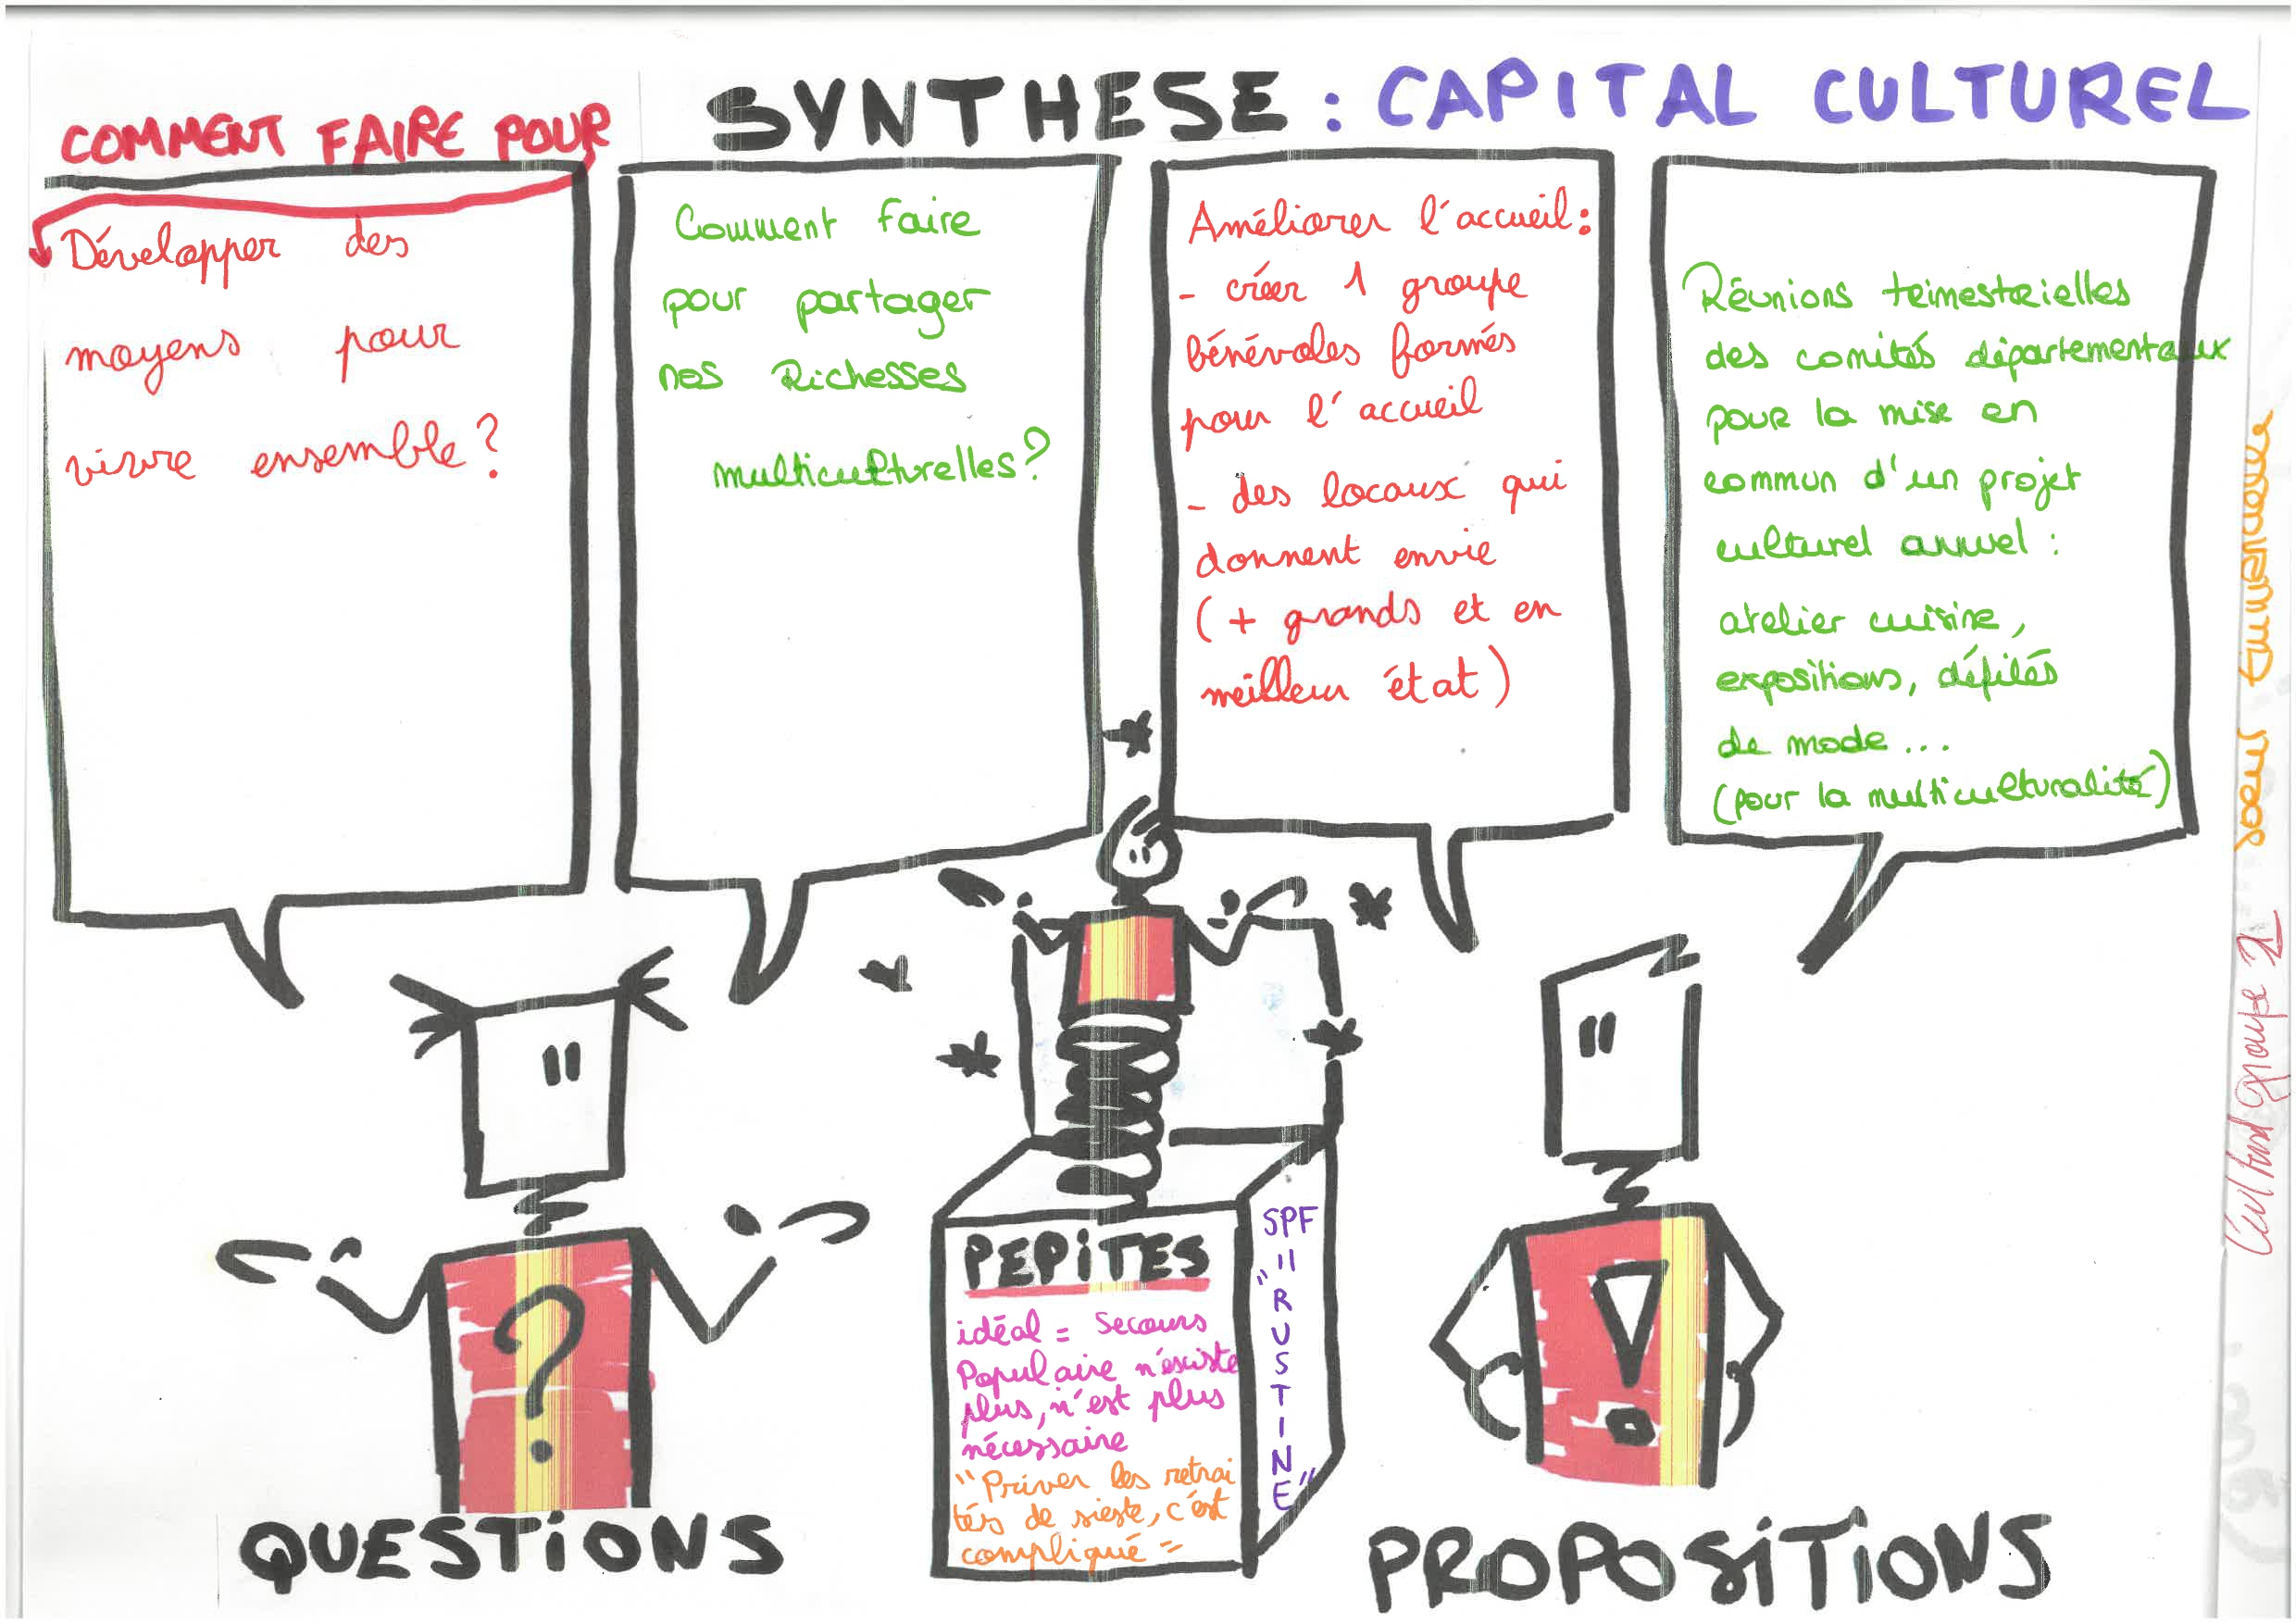 SYNTHESE : CAPITAL CULTUREL
COMMENT FAIRE POUR
Développer des
moyens pour
vivre ensemble ?
Comment faire
pour partager
nos Richesses
multiculturelles ?
Améliorer l'accueil :
- créer 1 groupe
bénévoles formés
pour l'accueil
- des locaux qui
donnent envie
(+ grands et en
meilleur état)
Réunions trimestrielles
des comités départementaux
pour la mise en
commun d'un projet
culturel annuel :
atelier cuisine,
expositions, défilés
de mode...
(pour la multiculturalité)
PEPITES
idéal = Secours
Populaire n'existe
plus, n'est plus
nécessaire
"Priver les retrai
tés de sieste, c'est
compliqué"
SPF
=
"RUSTINE"
QUESTIONS
PROPOSITIONS
groupe 2